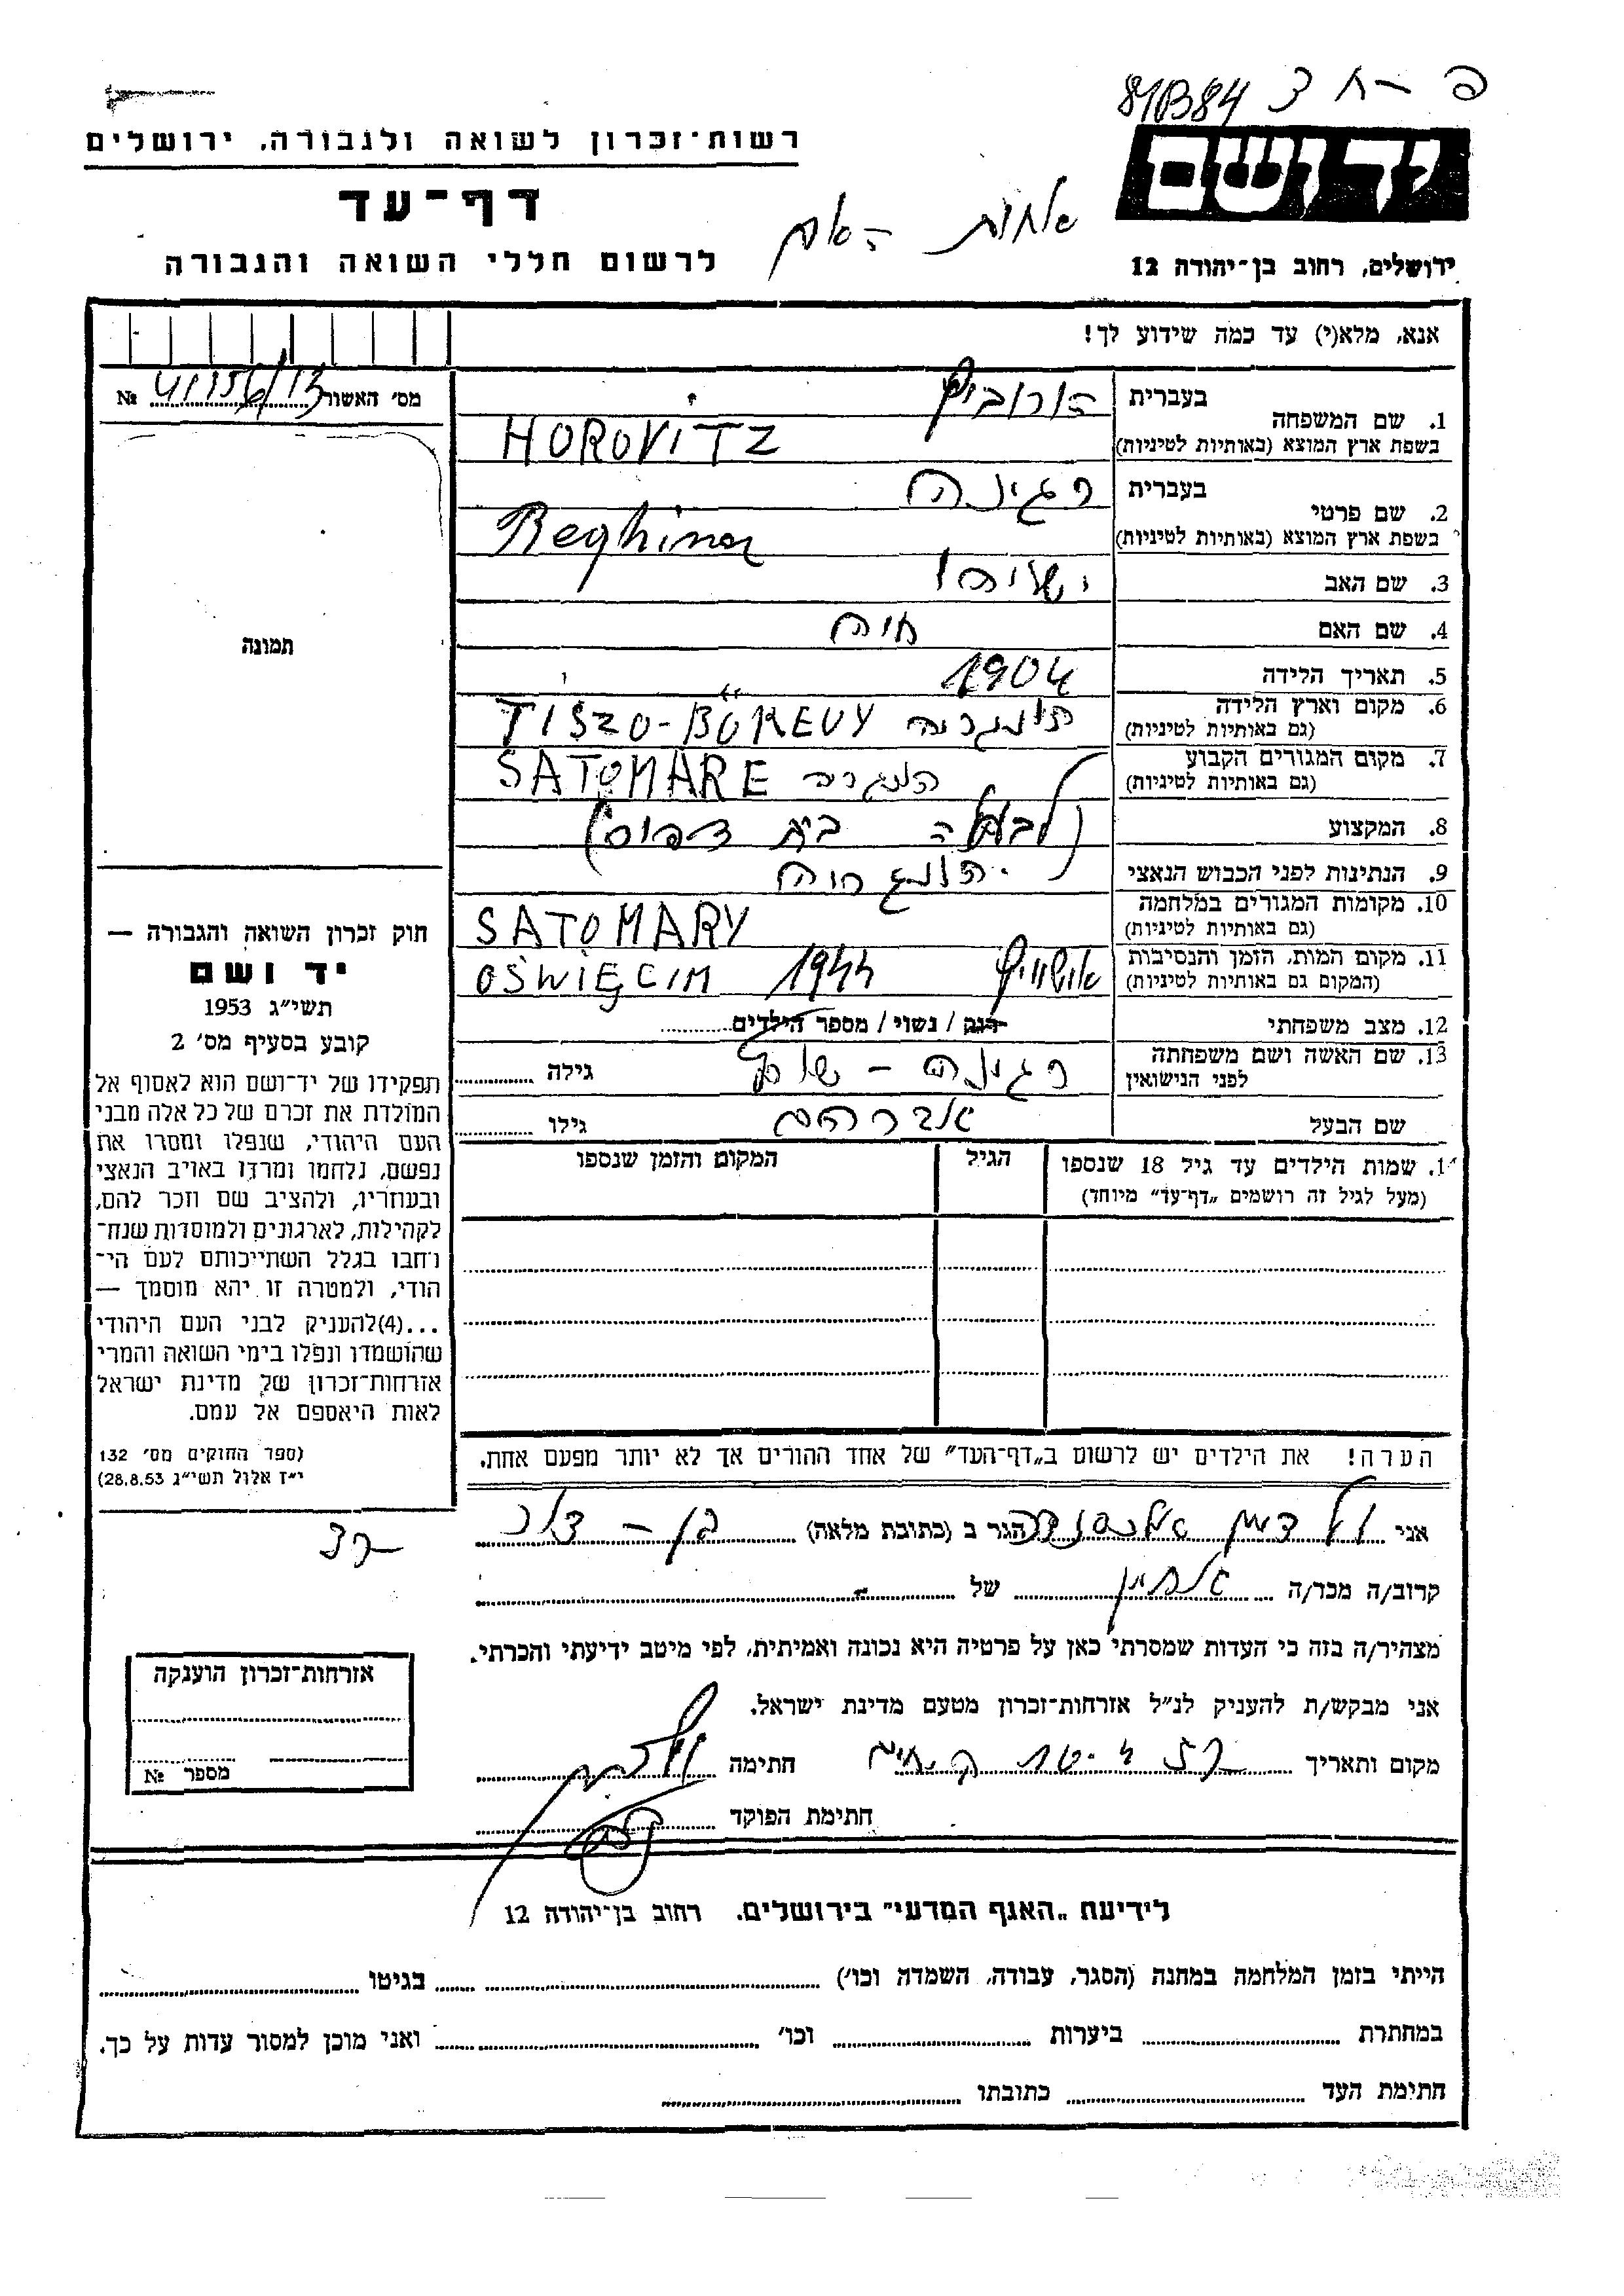 81B84
רשות־זכרון לשואה ולגבורה, ירושלים
יד ושם
דף־עד
אחות האם
לרשום חללי השואה והגבורה
ירושלים, רחוב בן־יהודה 12
אנא, מלא(י) עד כמה שידוע לך!
מס' האשור 41156/13 №
תמונה
בעברית הורוביץ
1. שם המשפחה
בשפת ארץ המוצא (באותיות לטיניות) HOROVITZ
בעברית רגינה
2. שם פרטי
בשפת ארץ המוצא (באותיות לטיניות) Reghina
3. שם האב ישעיהו
4. שם האם חיה
5. תאריך הלידה 1904
6. מקום וארץ הלידה הונגריה TISZO-BÖKEUY
(גם באותיות לטיניות)
7. מקום המגורים הקבוע הונגריה SATOMARE
(גם באותיות לטיניות)
8. המקצוע (לבעלה בית דפוס)
9. הנתינות לפני הכבוש הנאצי הונגריה
10. מקומות המגורים במלחמה SATOMARY
(גם באותיות לטיניות)
11. מקום המות, הזמן והנסיבות אושוויץ 1944 OŚWIĘCIM
(המקום גם באותיות לטיניות)
12. מצב משפחתי רוק / נשוי / מספר הילדים
13. שם האשה ושם משפחתה רגינה – גילה
לפני הנישואין
שם הבעל אברהם גילו
14. שמות הילדים עד גיל 18 שנספו הגיל המקום והזמן שנספו
(מעל לגיל זה רושמים „דף־עד" מיוחד)
הערה! את הילדים יש לרשום ב„דף־העד" של אחד ההורים אך לא יותר מפעם אחת.
חוק זכרון השואה והגבורה —
יד ושם
תשי״ג 1953
קובע בסעיף מס' 2
תפקידו של יד־ושם הוא לאסוף אל
המולדת את זכרם של כל אלה מבני
העם היהודי, שנפלו ומסרו את
נפשם, נלחמו ומרדו באויב הנאצי
ובעוזריו, ולהציב שם וזכר להם,
לקהילות, לארגונים ולמוסדות שנח־
רבו בגלל השתייכותם לעם הי־
הודי, ולמטרה זו יהא מוסמך —
...(4)להעניק לבני העם היהודי
שהושמדו ונפלו בימי השואה והמרי
אזרחות־זכרון של מדינת ישראל
לאות היאספם אל עמם.
(ספר החוקים מס' 132
י״ז אלול תשי״ג 28.8.53)
אני ולדמן אלכסנדר הגר ב (כתובת מלאה)
קרוב/ה מכר/ה אחיין של
מצהיר/ה בזה כי העדות שמסרתי כאן על פרטיה היא נכונה ואמיתית, לפי מיטב ידיעתי והכרתי.
אני מבקש/ת להעניק לנ״ל אזרחות־זכרון מטעם מדינת ישראל.
מקום ותאריך חתימה
חתימת הפוקד
אזרחות־זכרון הוענקה
מספר №
לידיעת „האגף המדעי" בירושלים, רחוב בן־יהודה 12
הייתי בזמן המלחמה במחנה (הסגר, עבודה, השמדה וכו') בגיטו
במחתרת ביערות וכו' ואני מוכן למסור עדות על כך.
חתימת העד כתובתו